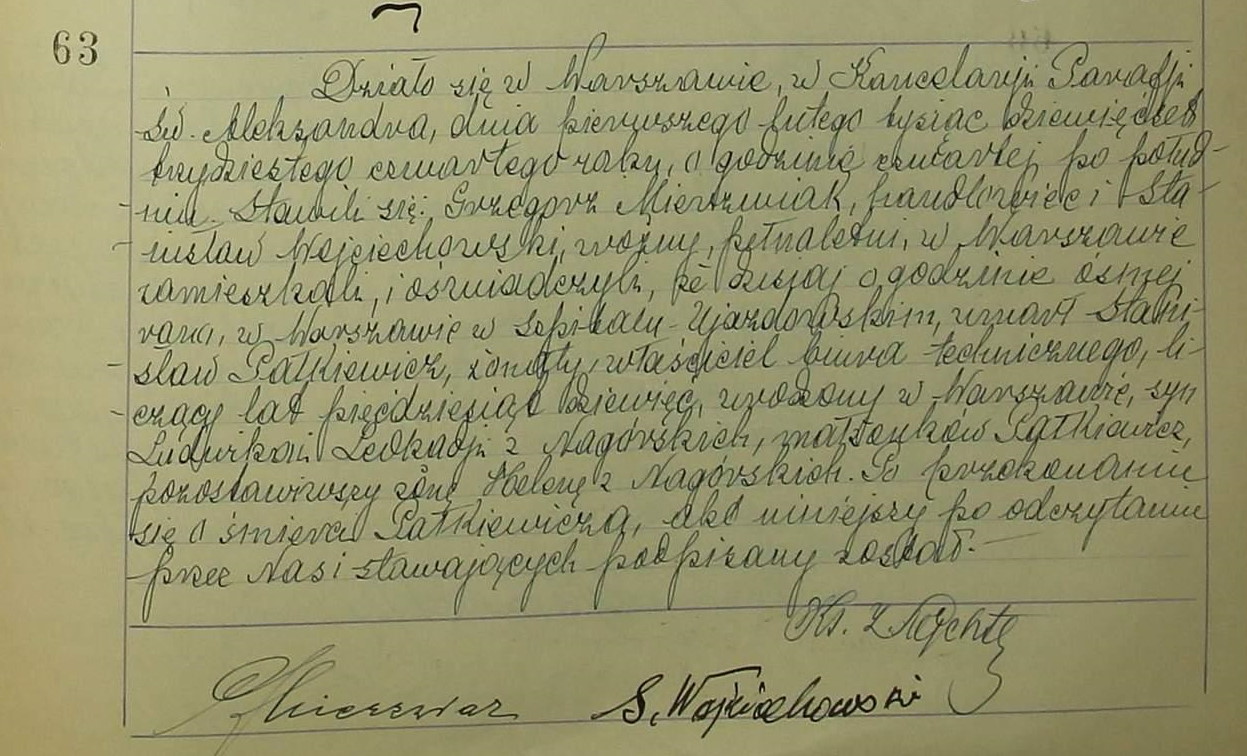 63
Działo się w Warszawie, w Kancelarji Parafji
Św. Aleksandra, dnia pierwszego lutego tysiąc dziewięćset
trzydziestego czwartego roku, o godzinie czwartej po połud-
niu. Stawili się: Grzegorz Mierzwiak, handlowiec i Sta-
nisław Wojciechowski, woźny, pełnoletni, w Warszawie
zamieszkali, i oświadczyli, że dzisiaj o godzinie ósmej
rano, w Warszawie w Szpitalu Ujazdowskim, umarł Stani-
sław Patkiewicz, żonaty, właściciel biura technicznego, li-
czący lat pięćdziesiąt dziewięć, urodzony w Warszawie, syn
Ludwika i Leokadji z Nagórskich, małżonków Patkiewicz,
pozostawiwszy żonę Helenę z Nagórskich. Po przekonaniu
się o śmierci Patkiewicza, akt niniejszy po odczytaniu
przez Nas i stawających podpisany został.
Ks. Z
S. Wojciechowski